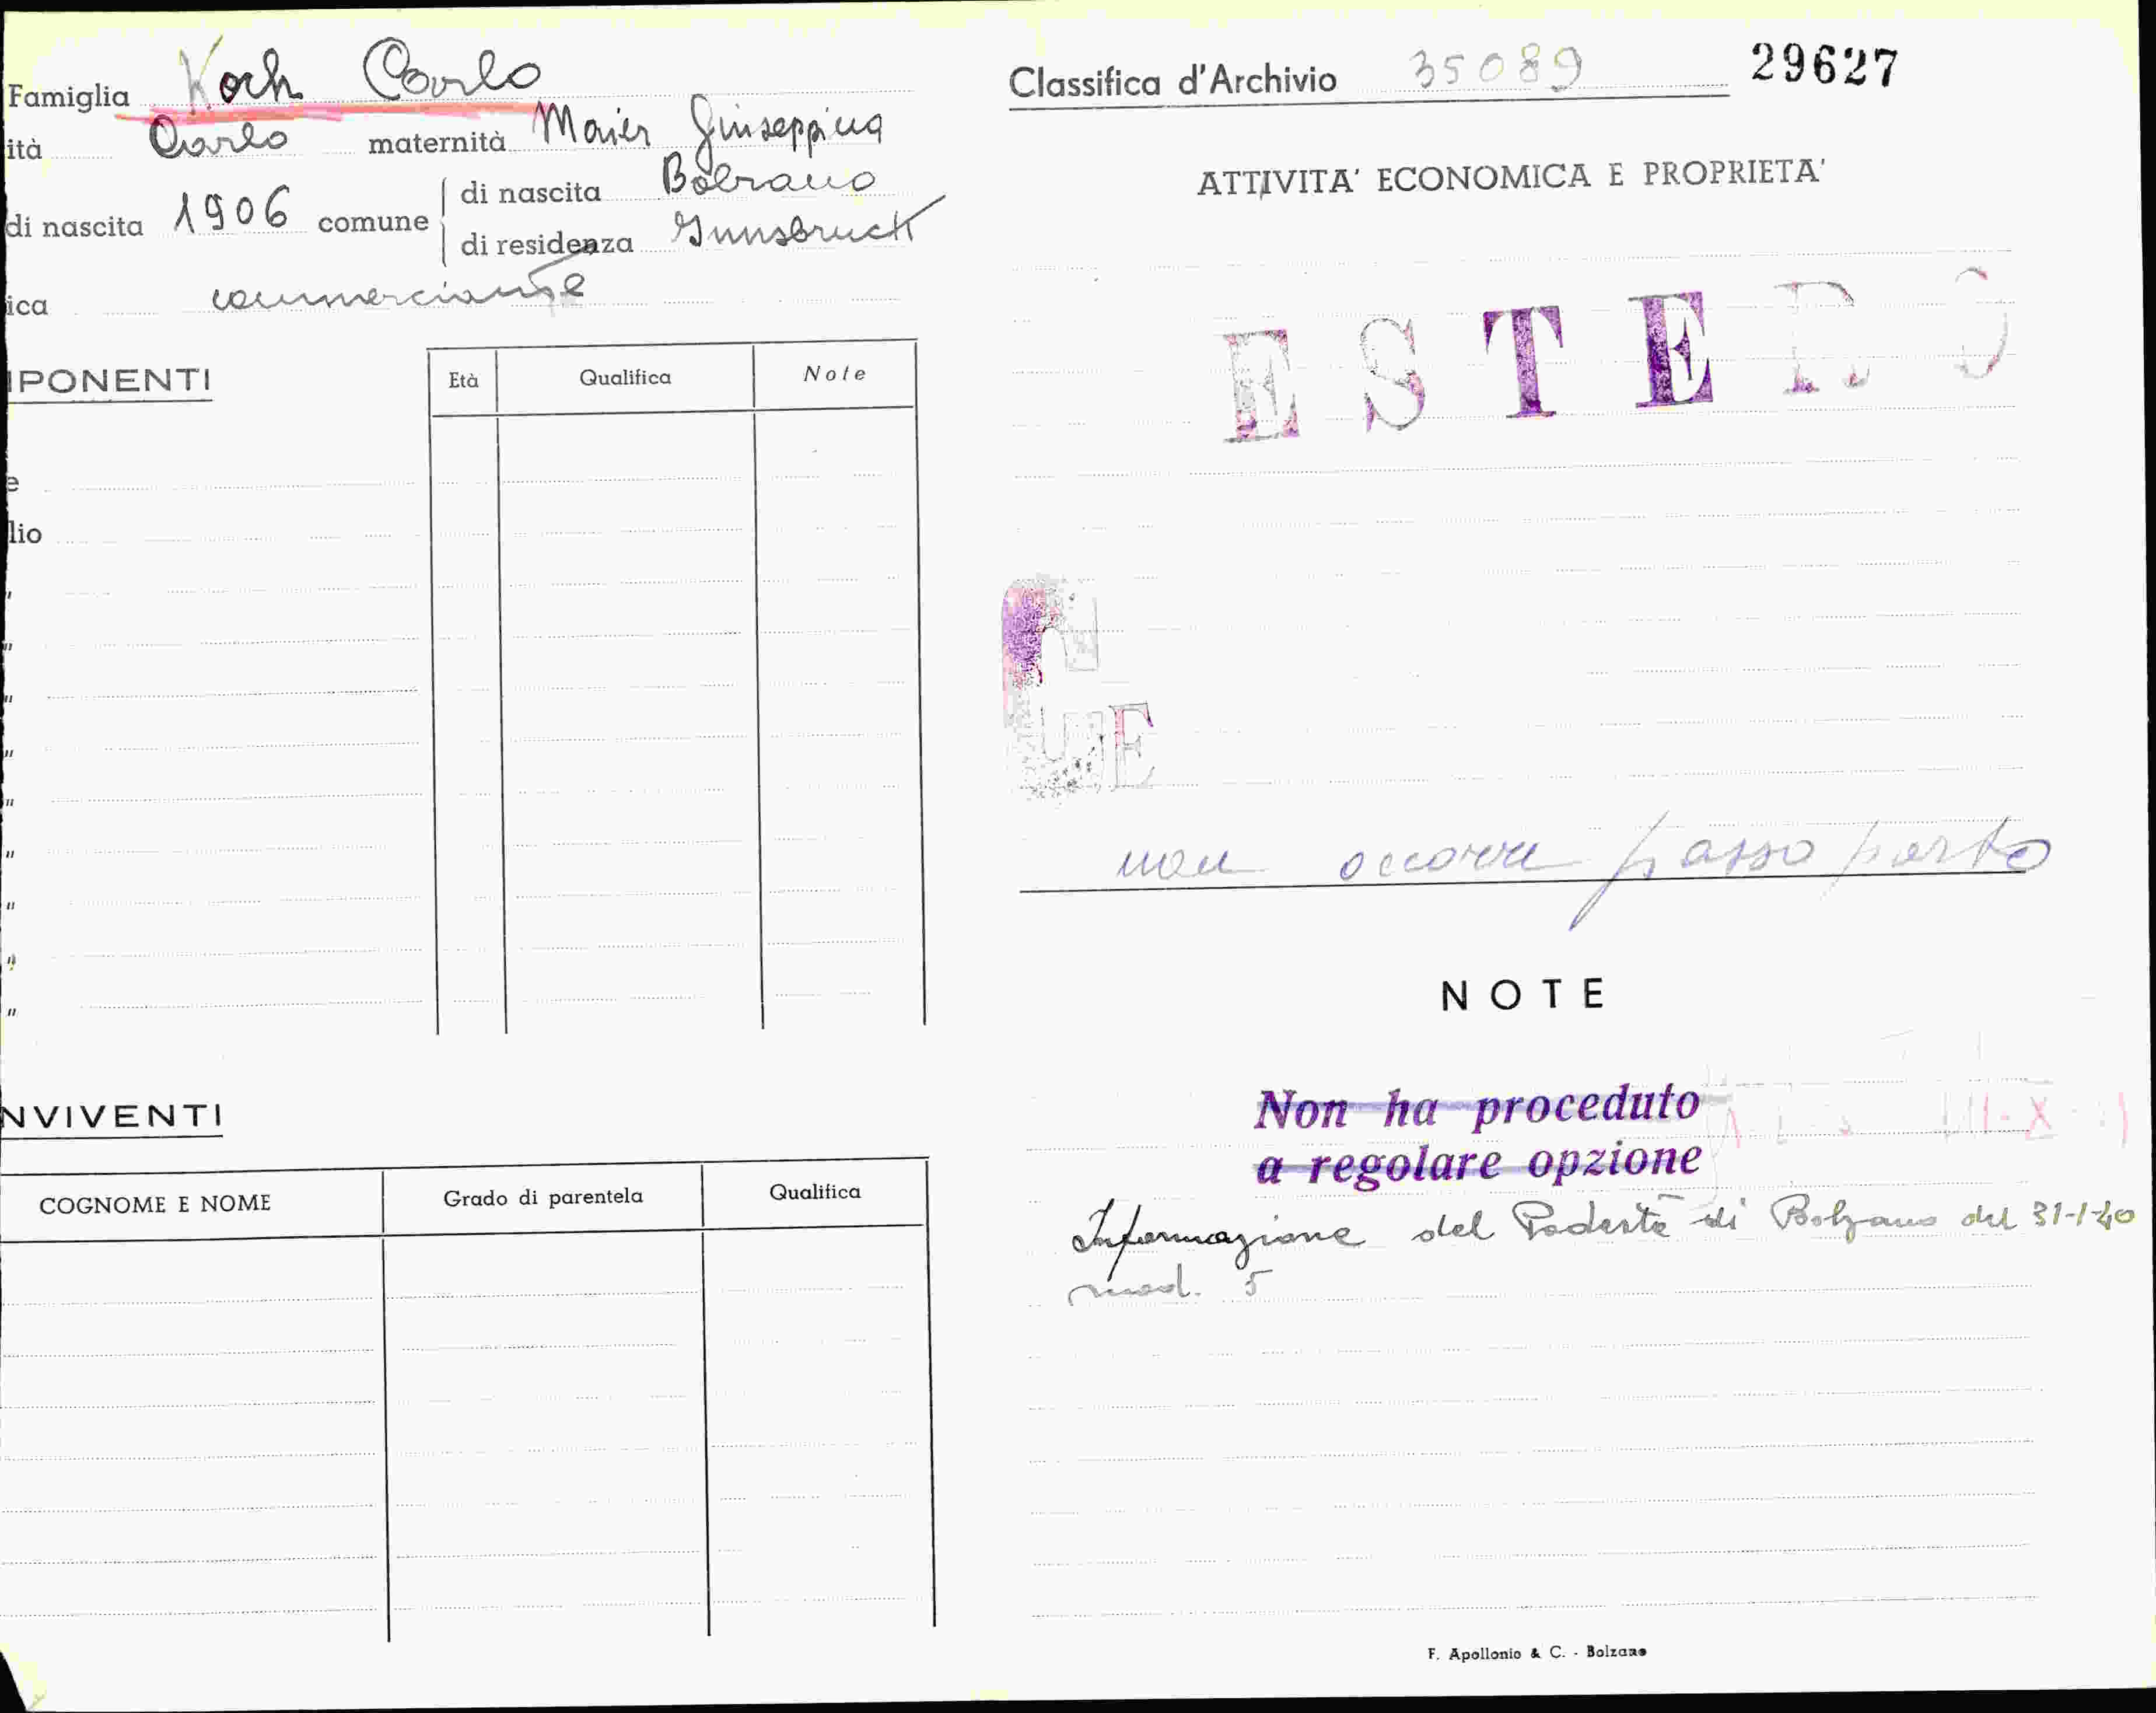 Famiglia Koch Carlo
ità Carlo maternità Maier Giuseppina
di nascita 1906 comune di nascita Bolzano
di residenza Innsbruck
ica commerciante
IPONENTI
Età Qualifica Note
e
lio
"
"
"
"
"
"
"
"
"
NVIVENTI
COGNOME E NOME Grado di parentela Qualifica
Classifica d'Archivio 35089 29627
ATTIVITA' ECONOMICA E PROPRIETA'
ESTERO
E
non occorre passaporto
NOTE
Non ha proceduto
a regolare opzione
Informazione del Podestà di Bolzano del 31-1-40
mod. 5
F. Apollonio & C. - Bolzano